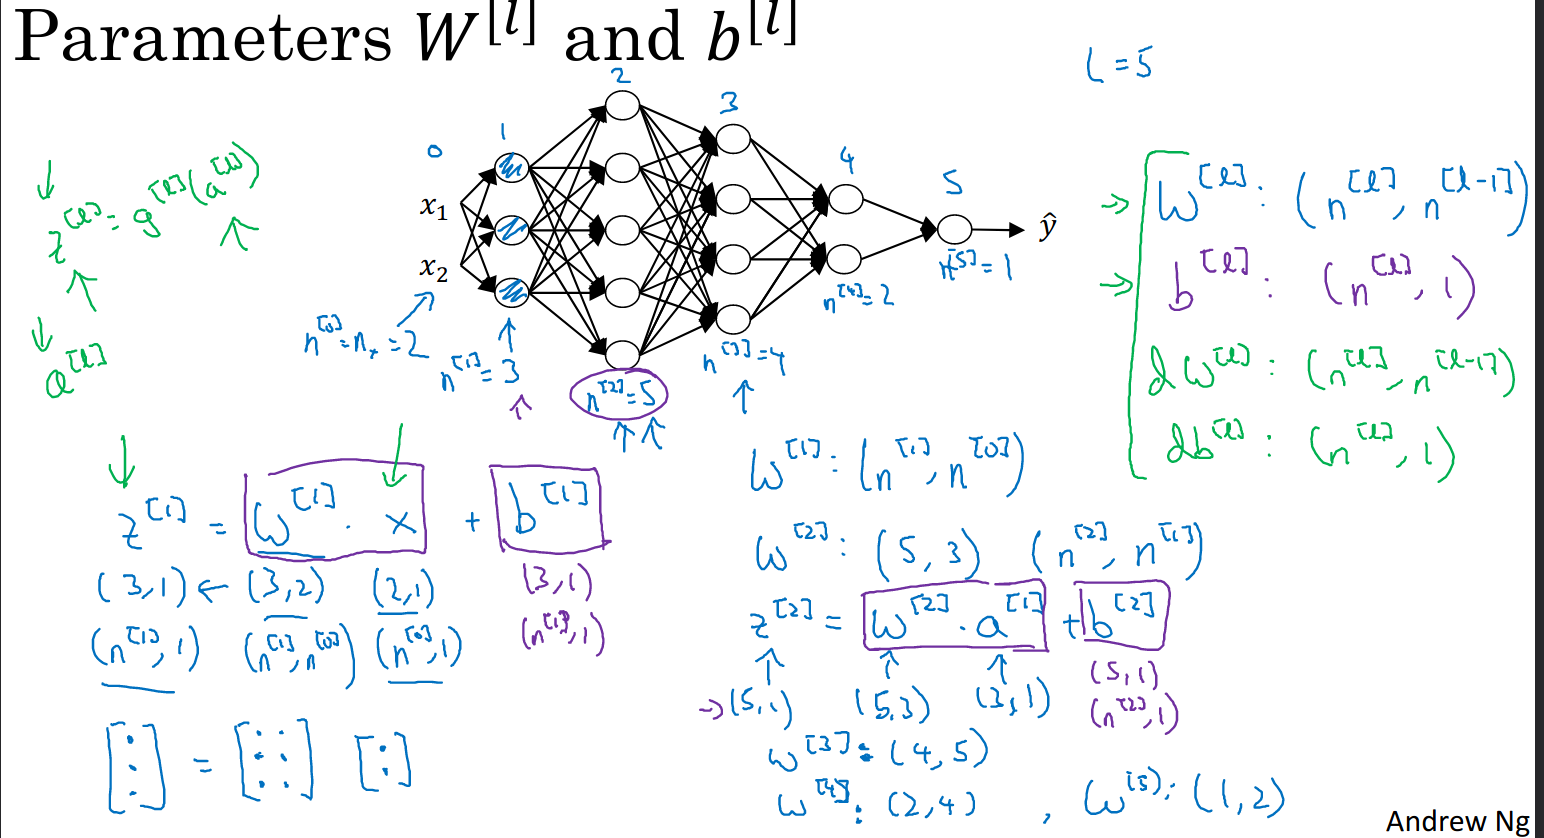 Parameters W^[l] and b^[l]
L = 5
0 1 2 3 4 5
x₁
x₂
ŷ
↓
z^[l] = g^[l](a^[l])
↑ ↑
↓
a^[l]
n^[0] = n_x = 2
n^[1] = 3
n^[2] = 5
n^[3] = 4
n^[4] = 2
n^[5] = 1
→ W^[l] : (n^[l], n^[l-1])
→ b^[l] : (n^[l], 1)
dW^[l] : (n^[l], n^[l-1])
db^[l] : (n^[l], 1)
z^[1] = W^[1] · x + b^[1]
(3,1) ← (3,2) (2,1) (3,1)
(n^[1], 1) (n^[1], n^[0]) (n^[0], 1) (n^[1], 1)
[⋮] = [⋮ ⋮] [:]
W^[1] : (n^[1], n^[0])
W^[2] : (5, 3) (n^[2], n^[1])
z^[2] = W^[2] · a^[1] + b^[2]
→ (5,1) (5,3) (3,1) (5,1)
(n^[2], 1)
W^[3] : (4, 5)
W^[4] : (2,4) , W^[5] : (1,2)
Andrew Ng